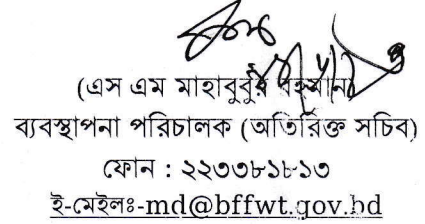 (এস এম মাহাবুবুর রহমান)
ব্যবস্থাপনা পরিচালক (অতিরিক্ত সচিব)
ফোন : ২২৩৩৮১৮১৩
ই-মেইলঃ-md@bffwt.gov.bd